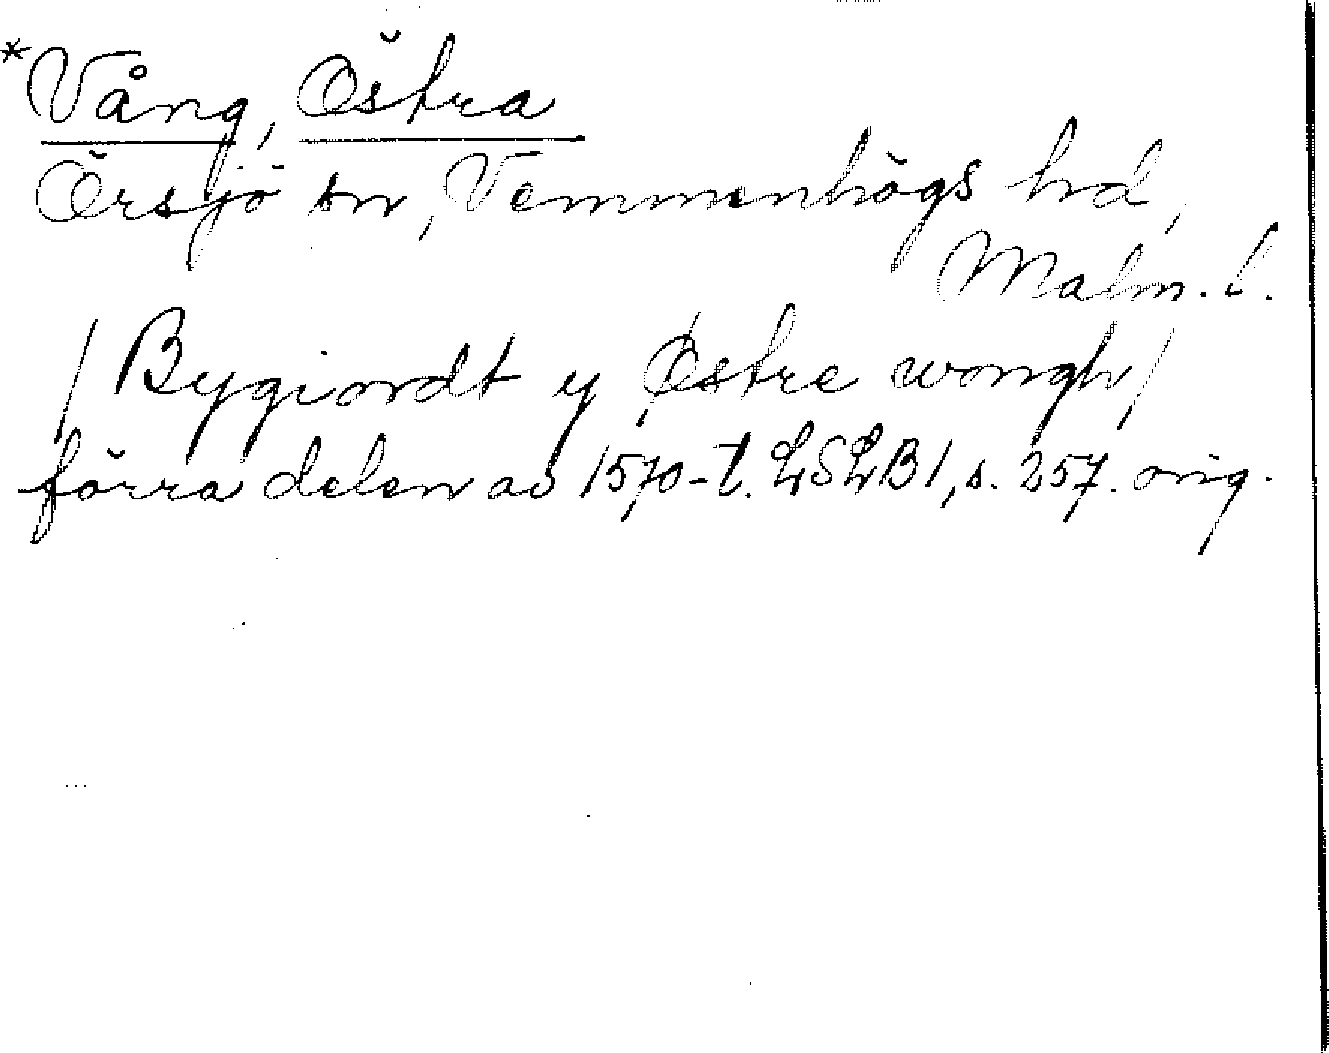 *Vång, Östra
Örsjö sn, Vemmenhögs hd,
Malm. l.
/Bygiordt y Østre wongh/
förra delen av 1570-t. LSLB1, s. 257. orig.